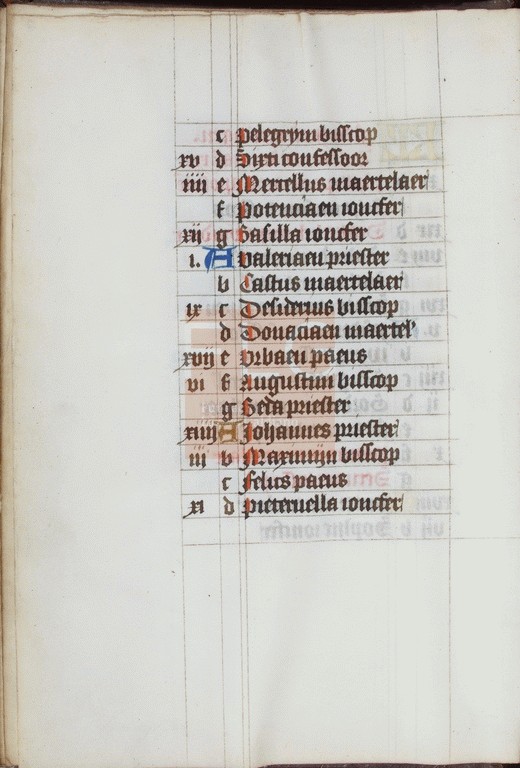 c pelegrym bisscop
xv d Sixti confessoor
iiii e Mercellus maertelaer
f potenciaen ioncfer
xij g Basilla ioncfer
i. A valeriaen priester
b Castus maertelaer
ix c Desiderius bisscop
d Donaciaen maertel'
xvij e vrbaen paeus
vi f Augustim bisscop
g Beda priester
xiiij A Johannes priester
iij b Maximijn bisscop
c felics paeus
xi d pieternella ioncfer